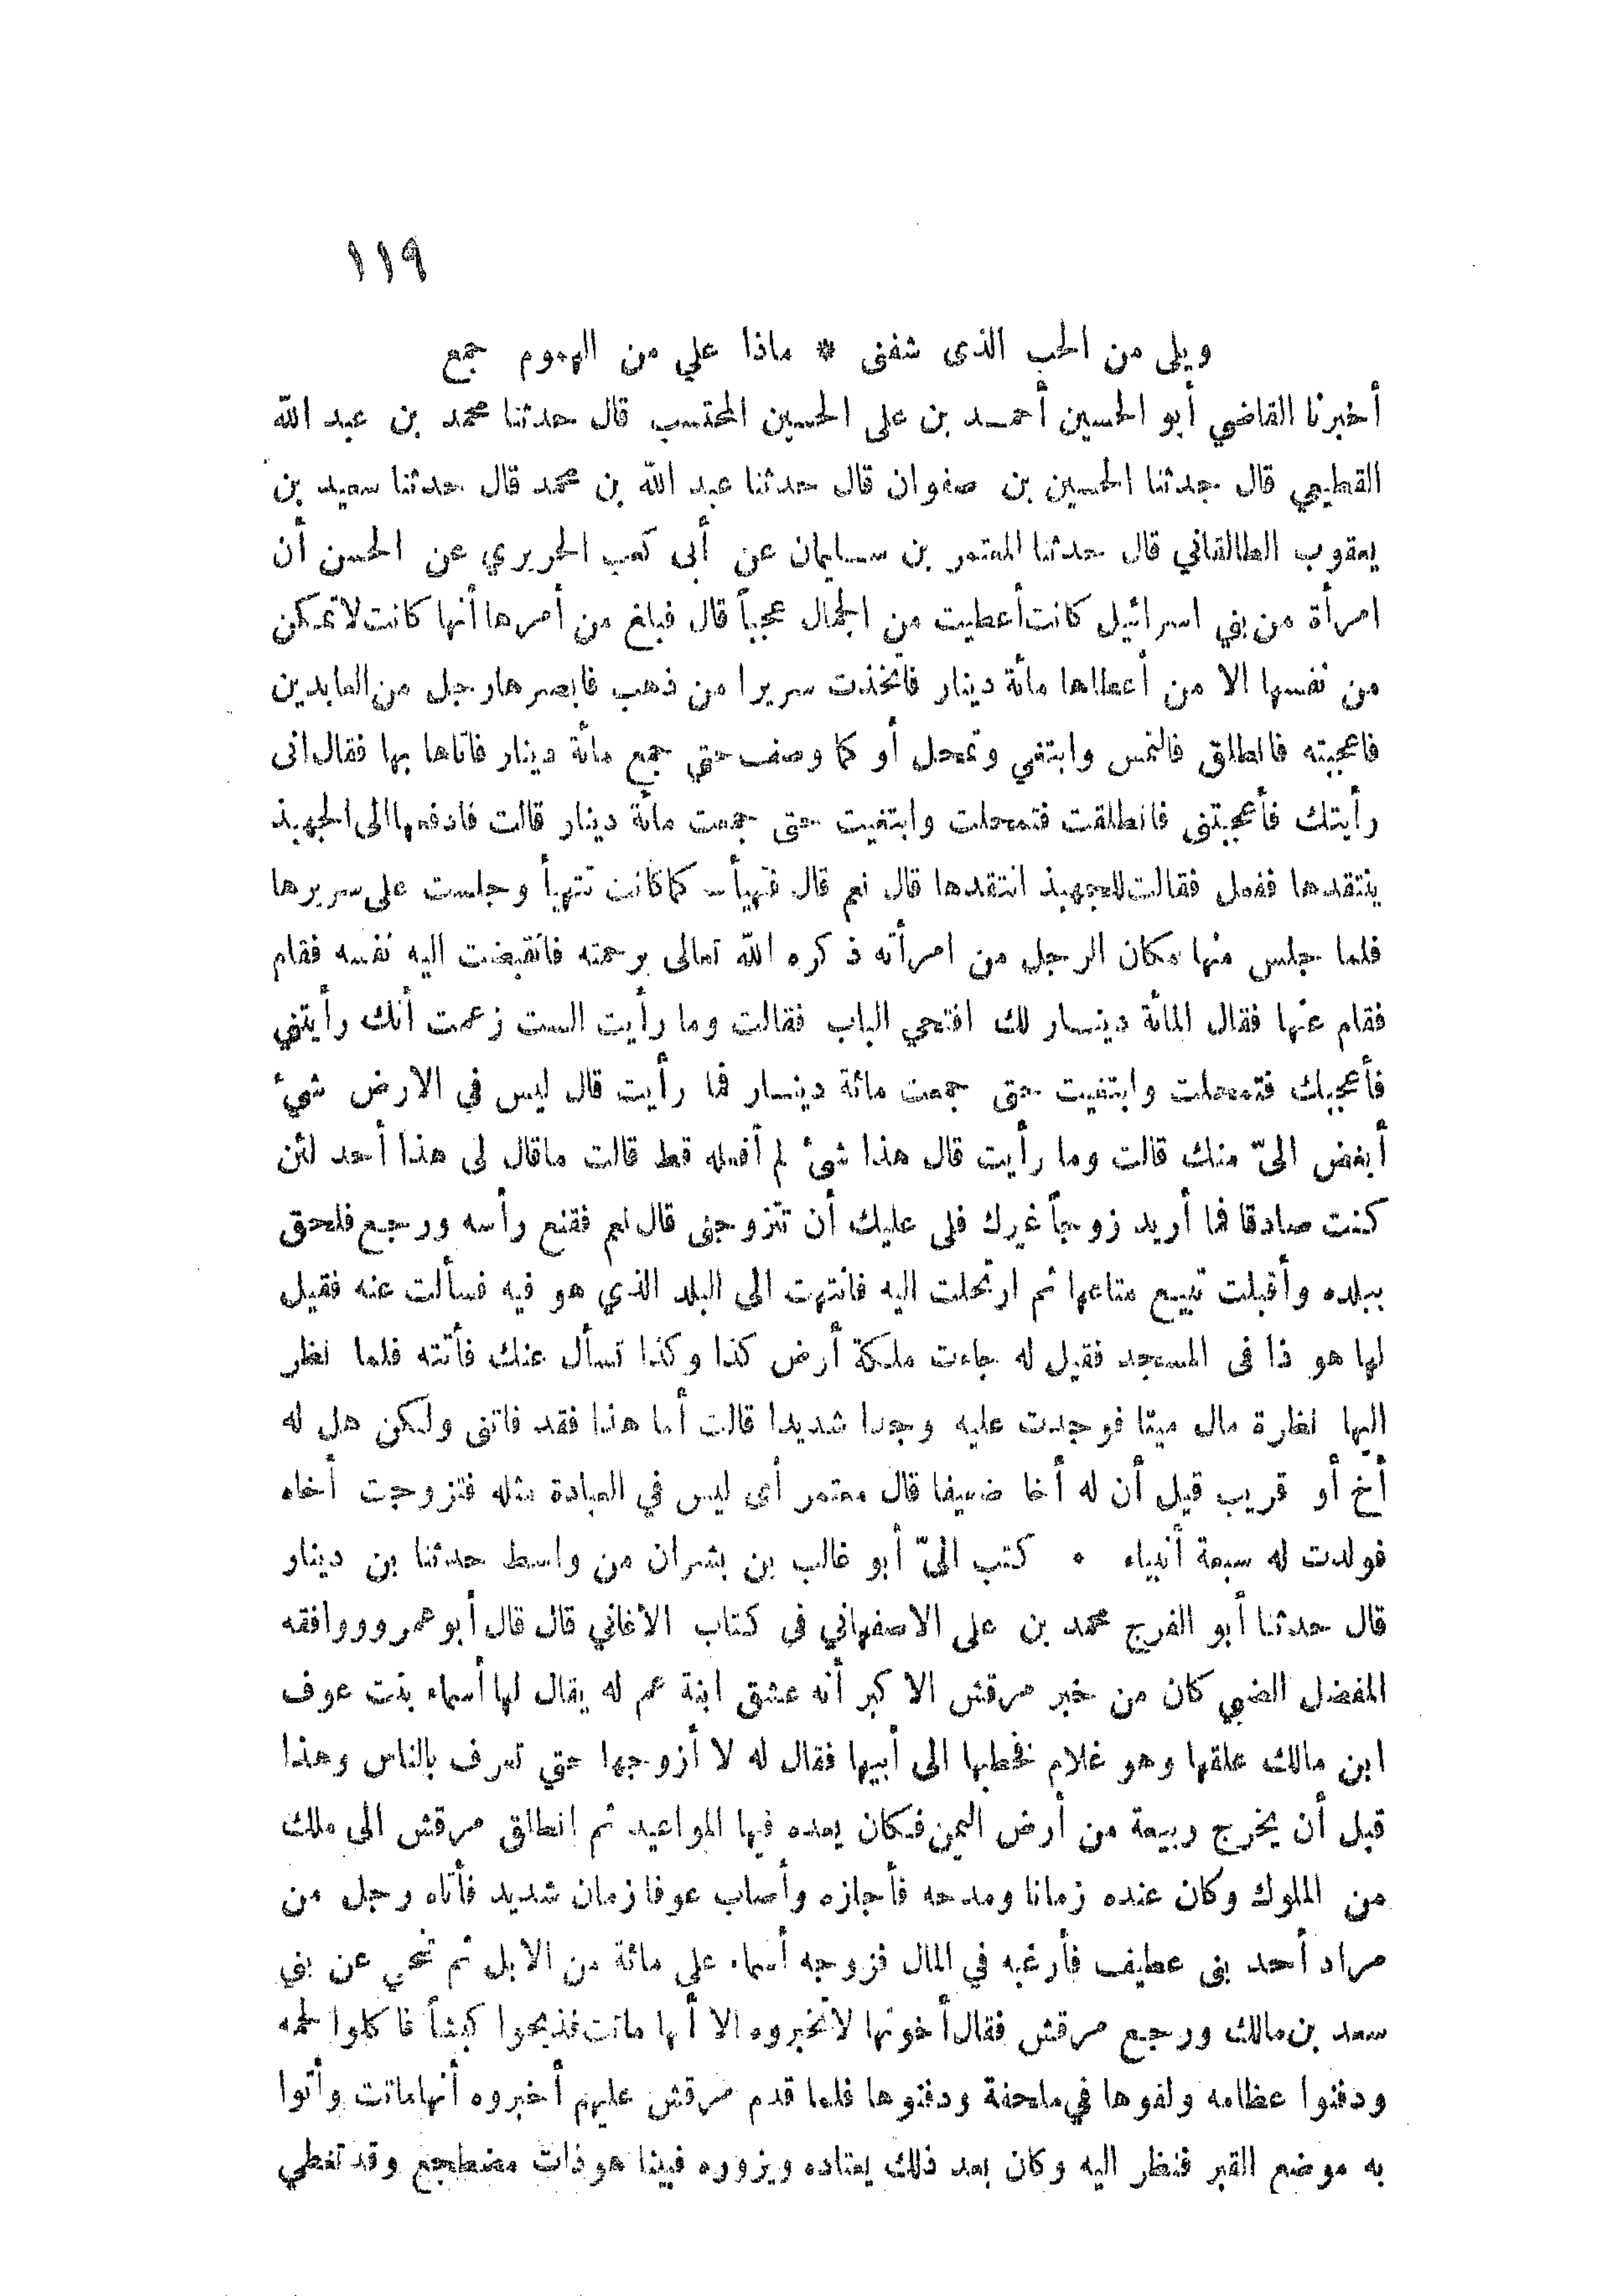 ١١٩
ويلى من الحب الذى شفنى * ماذا علي من الهموم جمع
أخبرنا القاضي أبو الحسين أحمد بن على الحسين المحتسب قال حدثنا محمد بن عبد الله
القطيعي قال حدثنا الحسين بن صفوان قال حدثنا عبد الله بن محمد قال حدثنا سعيد بن
يعقوب الطالقاني قال حدثنا المعتمر بن سليمان عن أبى كعب الحريري عن الحسن أن
امرأة من بني اسرائيل كانت أعطيت من الجمال عجباً قال فبلغ من أمرها أنها كانت لا تمكن
من نفسها الا من أعطاها مائة دينار فاتخذت سريرا من ذهب فابصرها رجل من العابدين
فاعجبته فانطلق فالتمس وابتغي وتمحل أو كما وصف حتي جمع مائة دينار فاتاها بها فقال انى
رأيتك فأعجبتنى فانطلقت فتمحلت وابتغيت حتى جمعت مائة دينار قالت فادفعها الى الجهبذ
ينتقدها ففعل فقالت للجهبذ انتقدها قال نعم قال فتهيأت كما كانت تتهيأ وجلست على سريرها
فلما جلس منها مكان الرجل من امرأته ذكره الله تعالى برحمته فانقبضت اليه نفسه فقام
فقام عنها فقال المائة دينار لك افتحي الباب فقالت وما رأيت الست زعمت أنك رأيتني
فأعجبك فتمحلت وابتغيت حتى جمعت مائة دينار فما رأيت قال ليس في الارض شئ
أبغض الىّ منك قالت وما رأيت قال هذا شئ لم أفعله قط قالت ماقال لى هذا أحد لئن
كنت صادقا فما أريد زوجاً غيرك فلى عليك أن تتزوجنى قال نعم فقنع رأسه ورجع فلحق
ببلده وأقبلت تبيع متاعها ثم ارتحلت اليه فانتهت الى البلد الذي هو فيه فسألت عنه فقيل
لها هو ذا فى المسجد فقيل له جاءت ملكة أرض كذا وكذا تسأل عنك فأتته فلما نظر
اليها نظرة مال ميتا فوجدت عليه وجدا شديدا قالت أما هذا فقد فاتنى ولكن هل له
أخ أو قريب قيل أن له أخا ضعيفا قال معتمر أى ليس في العبادة مثله فتزوجت أخاه
فولدت له سبعة أنبياء • كتب الىّ أبو غالب بن بشران من واسط حدثنا بن دينار
قال حدثنا أبو الفرج محمد بن على الاصفهاني فى كتاب الاغاني قال قال أبو عمرو ووافقه
المفضل الضبي كان من خبر مرقش الاكبر أنه عشق ابنة عم له يقال لها أسماء بنت عوف
ابن مالك علقها وهو غلام فخطبها الى أبيها فقال له لا أزوجها حتي تعرف بالناس وهذا
قبل أن يخرج ربيعة من أرض اليمن فكان يعده فيها المواعيد ثم انطلق مرقش الى ملك
من الملوك وكان عنده زمانا ومدحه فأجازه وأصاب عوفا زمان شديد فأتاه رجل من
مراد أحد بنى عطيف فأرغبه في المال فزوجه أسماء على مائة من الابل ثم تنحي عن بني
سعد بن مالك ورجع مرقش فقال أخوتها لا تخبروه الا أنها ماتت فذبحوا كبشاً فاكلوا لحمه
ودفنوا عظامه ولفوها في ملحفة ودفنوها فلما قدم مرقش عليهم أخبروه أنها ماتت وأتوا
به موضع القبر فنظر اليه وكان بعد ذلك يعتاده ويزوره فبينا هو ذات مضطجع وقد تغطي